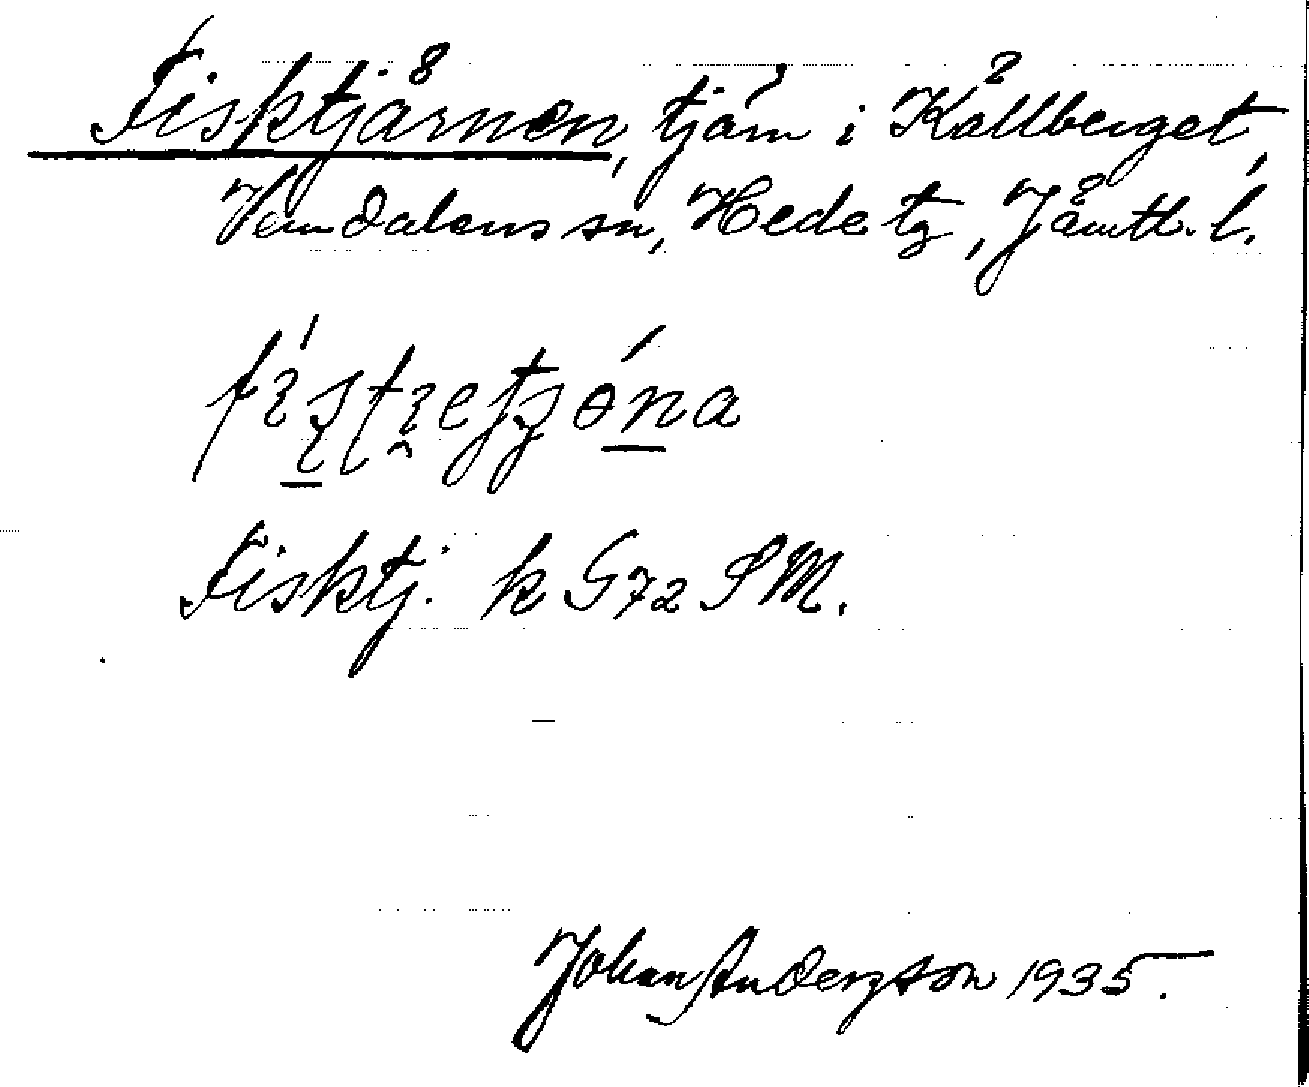 Fisktjärnen, tjärn i Källberget,
Vemdalens sn, Hede tg, Jämtl. l.
Fisktj. k G72 SM.
Johan Anderzson 1935.